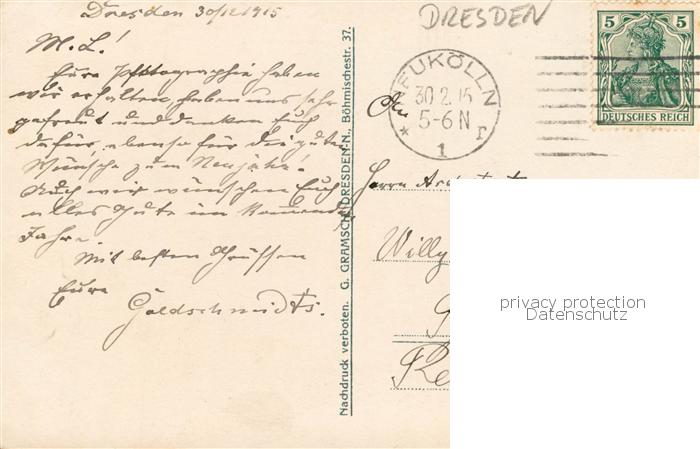 Dresden 30/12 1915
M. L.!
Eure Photographie haben
wir erhalten, haben uns sehr
gefreut und danken Euch
dafür, ebenso für die guten
Wünsche zum Neujahr!
Auch wir wünschen Euch
alles Gute im kommenden
Jahre.
Mit besten Grüssen
Eure
Goldschmidts.
Nachdruck verboten. G. GRAMSCH, DRESDEN-N., Böhmischestr. 37.
DRESDEN
EUKÖLLN
30.2.15
5-6N
* 1 r
5 5
DEUTSCHES REICH
An
Herrn
Willy
privacy protection
Datenschutz